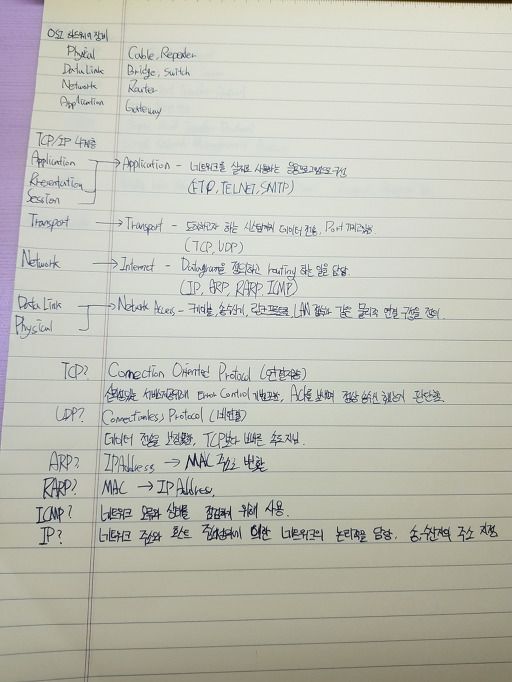 OSI 하드웨어 장비
Physical Cable, Repeater
Data Link Bridge, Switch
Network Router
Application Gateway
TCP/IP 4계층
Application → Application - 네트워크를 실제로 사용하는 응용프로그램으로 구성
Presentation (FTP, TELNET, SMTP)
Session
Transport → Transport - 도착하고자 하는 시스템까지 데이터 전송, Port
(TCP, UDP)
Network → Internet - Datagram을 정의하고 routing 하는 일을 담당
(IP, ARP, RARP, ICMP)
Data Link → Network Access - 케이블, 송수신기, 링크프로토콜, LAN 접속과 같은 물리적 연결 구성을 정의.
Physical
TCP? Connection Oriented Protocol (연결지향)
신뢰성있는 서비스제공위해 Error Control 기법포함, ACK를 보내며 정상 송수신 했는지 판단함.
UDP? Connectionless Protocol (비연결)
데이터 전송을 보장못함, TCP보다 빠른 속도지님.
ARP? IP Address → MAC 주소로 변환
RARP? MAC → IP Address.
ICMP? 네트워크 오류와 상태를 점검하기 위해 사용.
IP? 네트워크 주소와 호스트 주소 의한 네트워크의 논리적을 담당. 송,수신자의 주소 지정